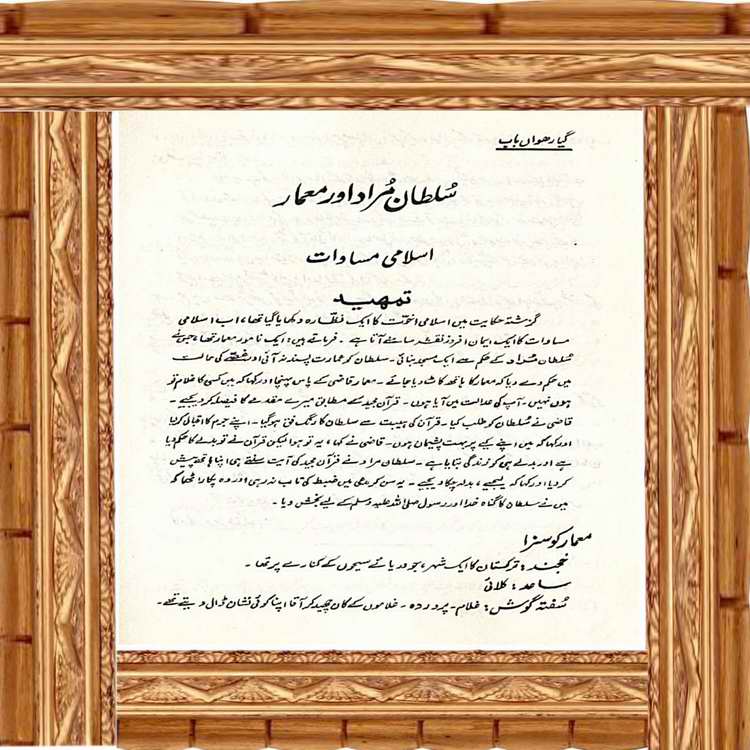 گیارھواں باب
سُلطان مُراد اور معمار
اسلامی مساوات
تمہید
گزشتہ حکایت میں اسلامی اخوّت کا ایک نظارہ دکھایا گیا تھا، اب اسلامی
مساوات کا ایک ایمان افروز نقشہ سامنے آتا ہے ۔ فرماتے ہیں: ایک نامور معمار تھا، جس نے
سُلطان مُراد کے حکم سے ایک مسجد بنائی ۔ سلطان کو عمارت پسند نہ آئی اور غصّے کی حالت
میں حکم دے دیا کہ معمار کا ہاتھ کاٹ دیا جائے ۔ معمار قاضی کے پاس پہنچا اور کہا کہ میں کسی کا غلام تو
ہوں نہیں ۔ آپ کی عدالت میں آیا ہوں ۔ قرآن مجید کے مطابق میرے مقدمے کا فیصلہ کر دیجیے ۔
قاضی نے سُلطان کو طلب کیا ۔ قرآن کی ہیبت سے سلطان کا رنگ فق ہو گیا ۔ اپنے جرم کا اقبال کر لیا
اور کہا کہ میں اپنے کیے پر بہت پشیمان ہوں ۔ قاضی نے کہا، یہ تو ہوا لیکن قرآن نے تو بدلے کا حکم دیا
ہے اور بدلے ہی کو زندگی بتایا ہے ۔ سلطان مراد نے قرآن مجید کی آیت سنتے ہی اپنا ہاتھ پیش
کر دیا اور کہا کہ لیجیے، بدلہ چکا دیجیے ۔ یہ سن کر مدعی میں ضبط کی تاب نہ رہی اور وہ پکار اٹھا کہ
میں نے سلطان کا گناہ خدا اور رسول صلی اللہ علیہ وسلم کے لیے بخش دیا ۔
معمار کو سزا
خجند: ترکستان کا ایک شہر، جو دریائے سیحوں کے کنارے پر تھا ۔
ساعد: کلائی
سُفتہ گوش: غلام ۔ پروردہ ۔ غلاموں کے کان چھید کر آقا اپنا کوئی نشان ڈال دیتے تھے ۔